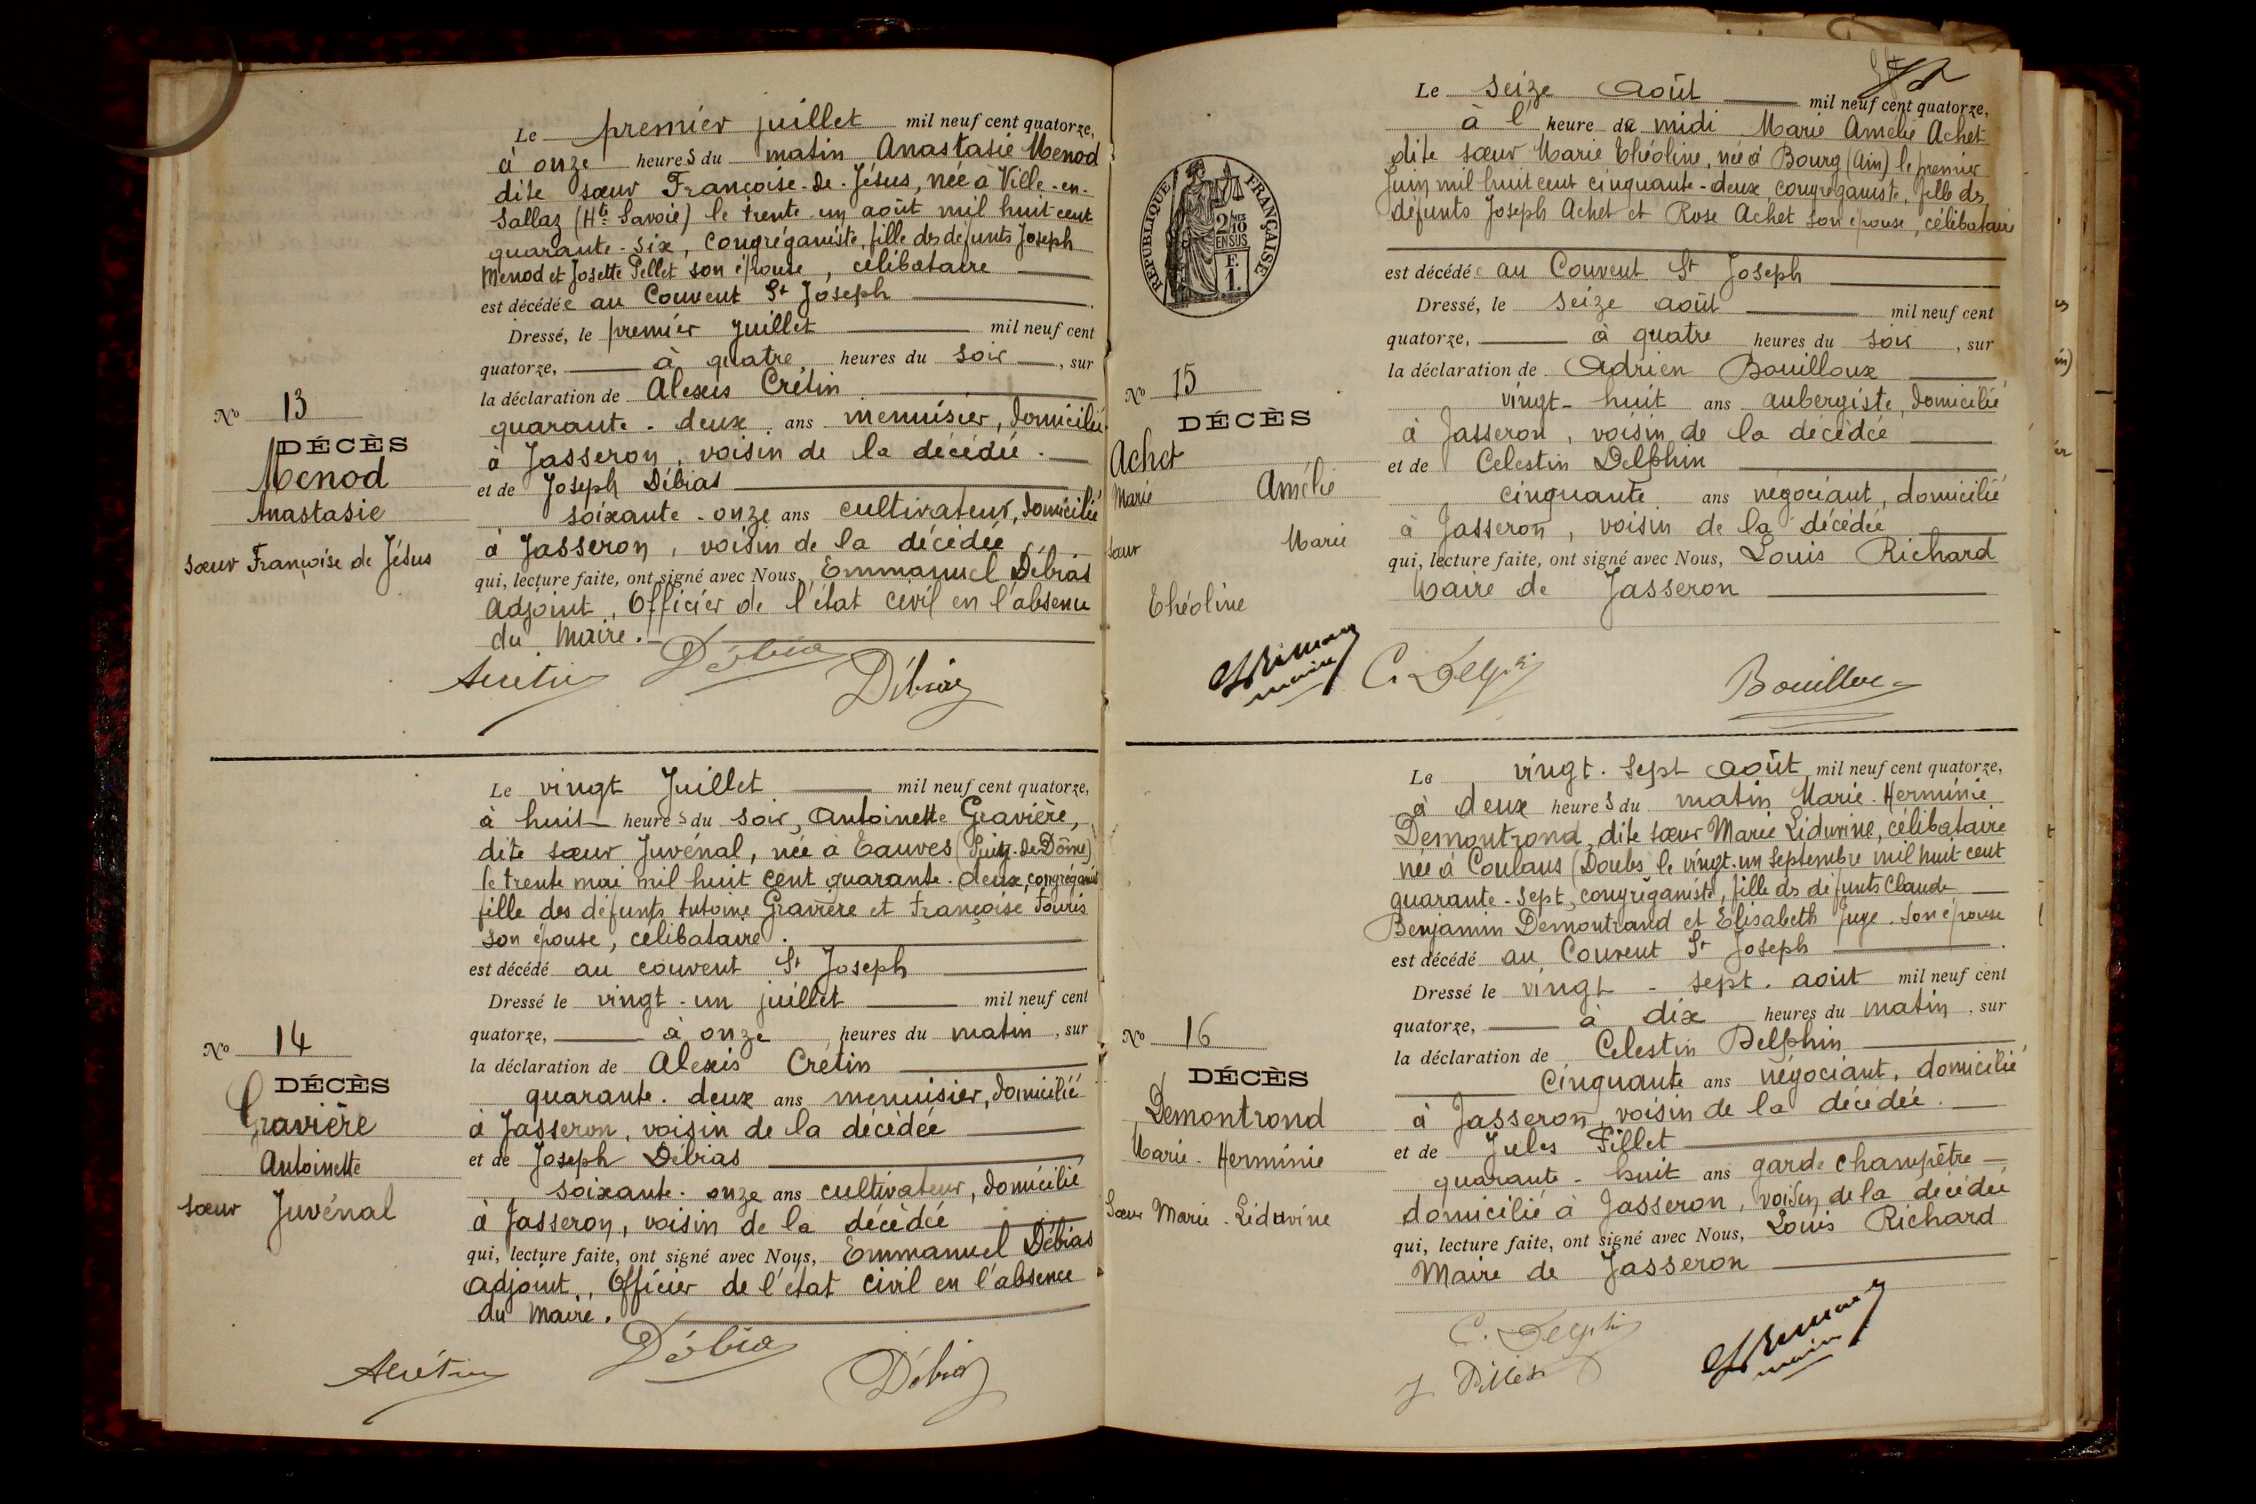 Le premier juillet mil neuf cent quatorze,
à onze heures du matin Anastasie Menod
dite sœur Françoise-de-Jésus, née à Ville-en-
Sallaz (Hte Savoie) le trente-un août mil huit cent
quarante-six, congréganiste, fille des défunts Joseph
Menod et Josette Pellet son épouse, célibataire
est décédée au Couvent St Joseph
Dressé, le premier Juillet mil neuf cent
quatorze, à quatre heures du soir, sur
la déclaration de Alexis Crétin
quarante-deux ans menuisier, domicilié
à Jasseron, voisin de la décédée.
et de Joseph Débias
soixante-onze ans cultivateur, domicilié
à Jasseron, voisin de la décédée
qui, lecture faite, ont signé avec Nous, Emmanuel Débias
adjoint, Officier de l'état civil en l'absence
du Maire.
No 13
DÉCÈS
Menod
Anastasie
sœur Françoise de Jésus
Acrétin Débias Débias
Le vingt Juillet mil neuf cent quatorze,
à huit heures du soir, Antoinette Gravière,
dite sœur Juvénal, née à Eauves (Puy-de-Dôme)
le trente mai mil huit cent quarante-deux, congréganiste
fille des défunts Antoine Gravière et Françoise Fouris
son épouse, célibataire.
est décédé au couvent St Joseph
Dressé le vingt-un juillet mil neuf cent
quatorze, à onze heures du matin, sur
la déclaration de Alexis Crétin
quarante-deux ans menuisier, domicilié
à Jasseron, voisin de la décédée
et de Joseph Débias
soixante-onze ans cultivateur, domicilié
à Jasseron, voisin de la décédée
qui, lecture faite, ont signé avec Nous, Emmanuel Débias
adjoint, Officier de l'état civil en l'absence
du Maire.
No 14
DÉCÈS
Gravière
Antoinette
sœur Juvénal
Acrétin Débias Débias
RÉPUBLIQUE FRANÇAISE
2/10
EN SUS
F.
1.
Le seize août mil neuf cent quatorze,
à l'heure de midi Marie Amélie Achet
dite sœur Marie Théoline, née à Bourg (Ain) le premier
Juin mil huit cent cinquante-deux congréganiste, fille des
défunts Joseph Achet et Rose Achet son épouse, célibataire
est décédée au Couvent St Joseph
Dressé, le seize août mil neuf cent
quatorze, à quatre heures du soir, sur
la déclaration de Adrien Bouilloux
vingt-huit ans aubergiste, domicilié
à Jasseron, voisin de la décédée
et de Celestin Delphin
cinquante ans négociant, domicilié
à Jasseron, voisin de la décédée
qui, lecture faite, ont signé avec Nous, Louis Richard
Maire de Jasseron
No 15
DÉCÈS
Achet
Marie Amélie
sœur Marie
Théoline
maire C. Delphin Bouilloux
Le vingt-sept août mil neuf cent quatorze,
à deux heures du matin Marie-Herminie
Demontrond, dite sœur Marie Liduvine, célibataire
née à Coulans (Doubs) le vingt-un Septembre mil huit cent
quarante-sept, congréganiste, fille des défunts Claude
Benjamin Demontrond et Elisabeth Juge son épouse
est décédé au Couvent St Joseph.
Dressé le vingt-sept août mil neuf cent
quatorze, à dix heures du matin, sur
la déclaration de Celestin Delphin
cinquante ans négociant, domicilié
à Jasseron, voisin de la décédée.
et de Jules Fillet
quarante-huit ans garde champêtre
domicilié à Jasseron, voisin de la décédée
qui, lecture faite, ont signé avec Nous, Louis Richard
Maire de Jasseron
No 16
DÉCÈS
Demontrond
Marie-Herminie
Sœur Marie-Liduvine
C. Delphin
maire